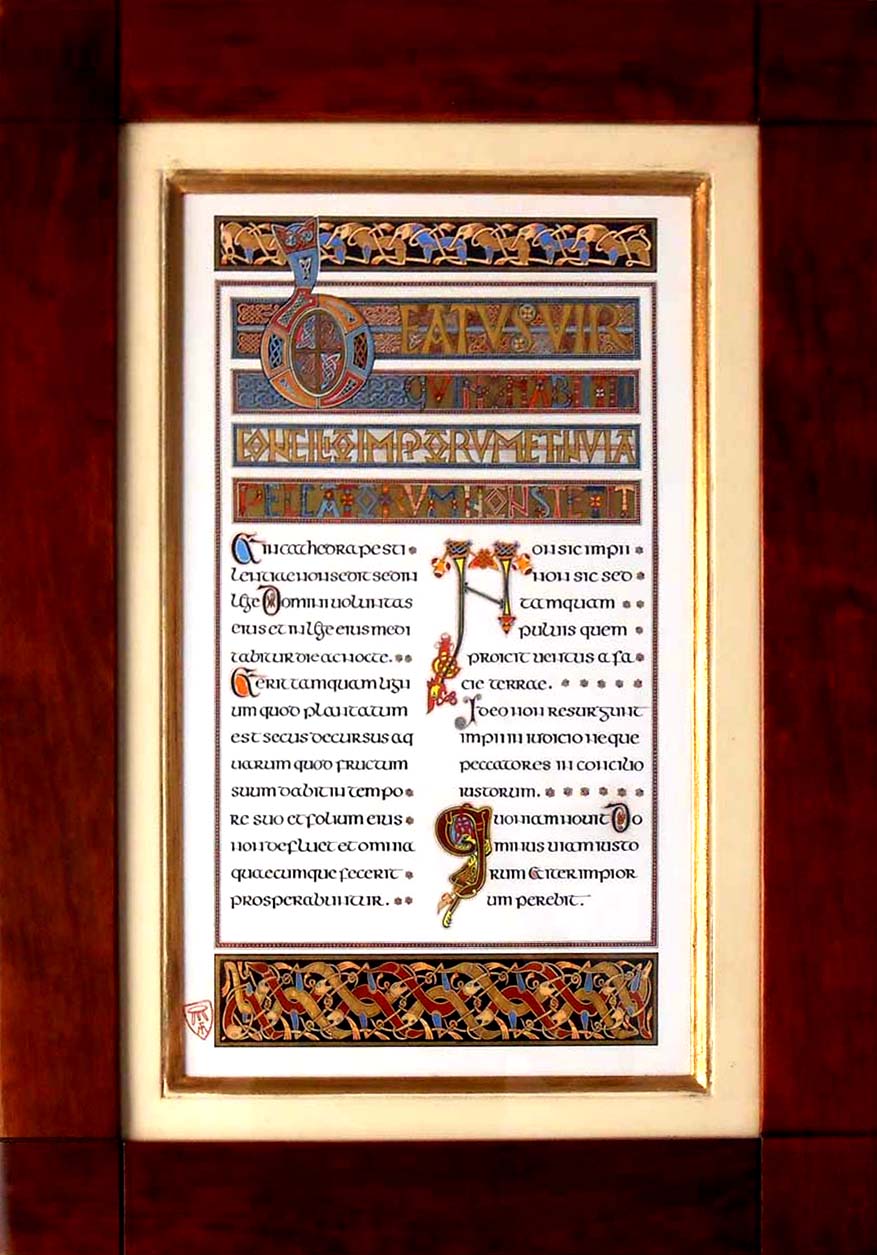 BEATVS VIR
QVI NON ABIIT IN
CONCILIO IMPIORVM ET IN VIA
PECCATORVM NON STETIT
Et in cathedra pesti
lentiae non sedit sed in
lege Domini uoluntas
eius et in lege eius medi
tabitur die ac nocte.
Et erit tamquam lign
um quod plantatum
est secus decursus aq
uarum quod fructum
suum dabit in tempo
re suo et folium eius
non defluet et omnia
quaecumque fecerit
prosperabuntur.
Non sic impii
non sic sed
tamquam
puluis quem
proicit uentus a fa
cie terrae.
Ideo non resurgunt
impii in iudicio neque
peccatores in concilio
iustorum.
Quoniam nouit Do
minus uiam iusto
rum et iter impior
um peribit.